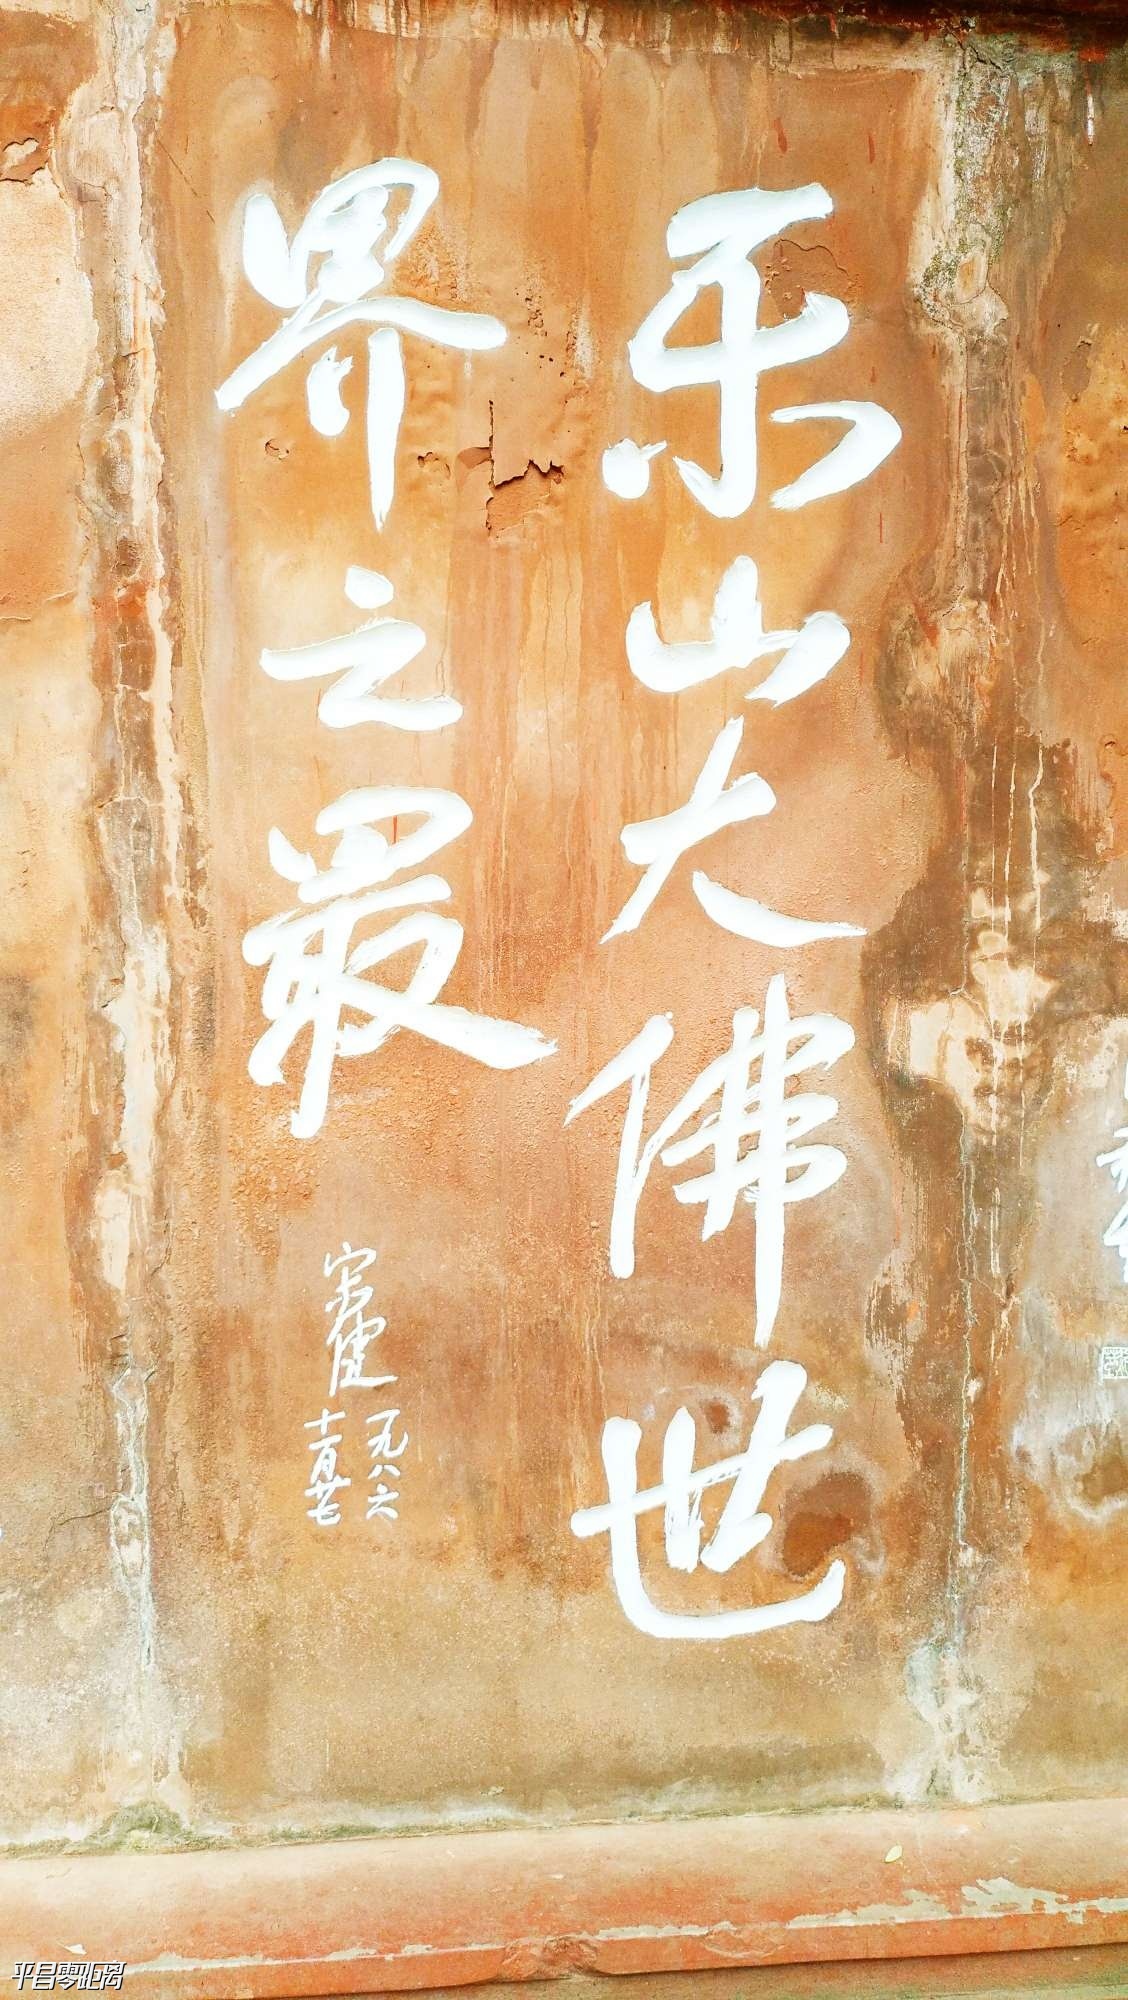 乐山大佛世
界之最
一九八六
十一月廿七
平昌零距离